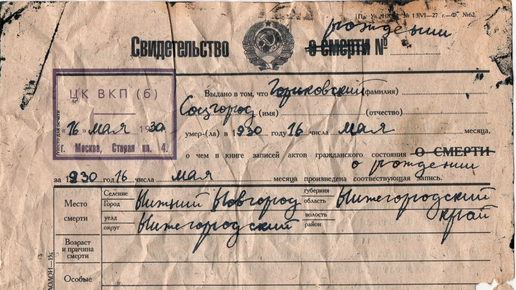 №62.
Свидетельство о смерти № рождении
ЦК ВКП (б)
16 мая 1930
г. Москва, Старая пл. 4.
Выдано в том, что Горьковский (фамилия)
Соцгород (имя) (отчество)
умер-(ла) в 1930 году 16 числа мая месяца,
о чем в книге записей актов гражданского состояния о смерти
о рождении
за 1930 год 16 числа мая месяца произведена соответствующая запись.
Место смерти
Селение
Город Нижний Новгород
губерния
область Нижегородский край
уезд
округ Нижегородский
волость
район
Возраст и причина смерти
Особые